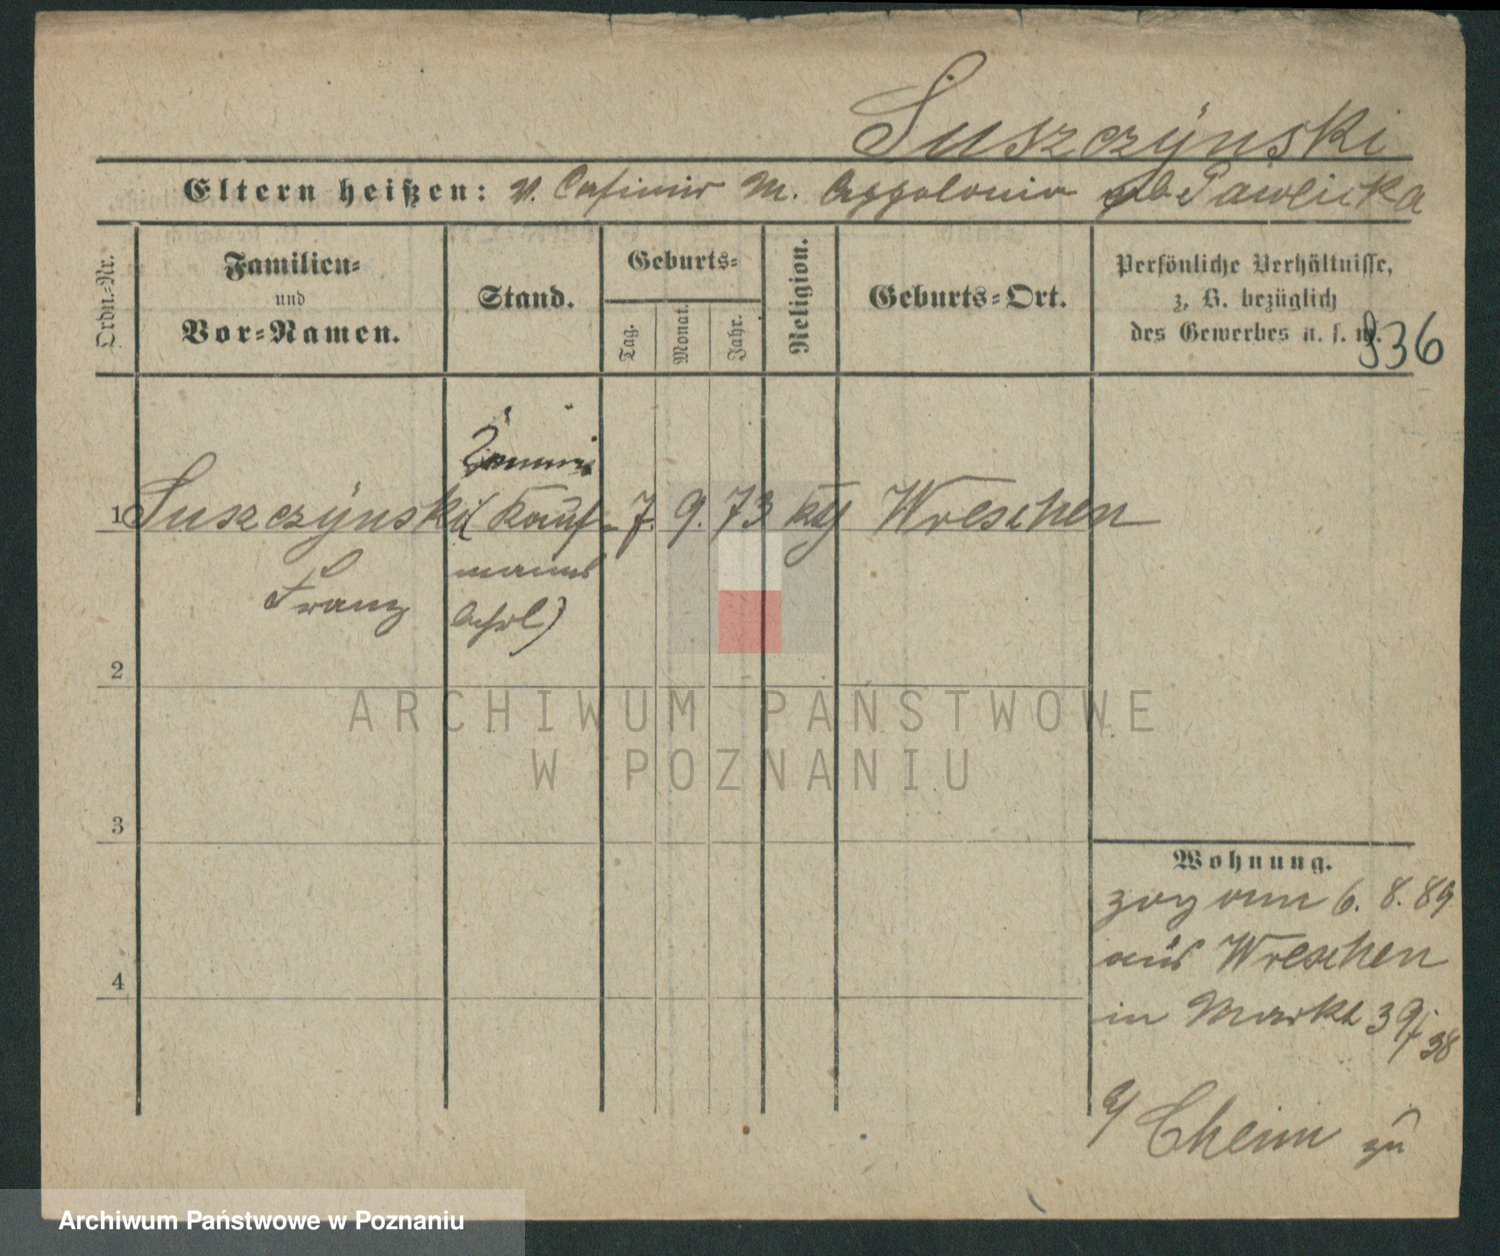 Suszczÿnski
Eltern heißen: V. Casimir M. Appolonia geb Pawlicka
Ordn.-Nr.
Familien-
und
Vor-Namen.
Stand.
Geburts-
Tag.
Monat.
Jahr.
Religion.
Geburts-Ort.
Persönliche Verhältnisse,
z. B. bezüglich
des Gewerbes u. s. w.
936
Commis
1 Suszczÿnski (Kauf- 7. 9. 73 kg Wreschen
manns
Franz
lehrl)
2
ARCHIWUM PAŃSTWOWE
W POZNANIU
3
Wohnung.
zog am 6. 8. 89
4
aus Wreschen
in Markt 39/
38
b/ Cheim zu
Archiwum Państwowe w Poznaniu